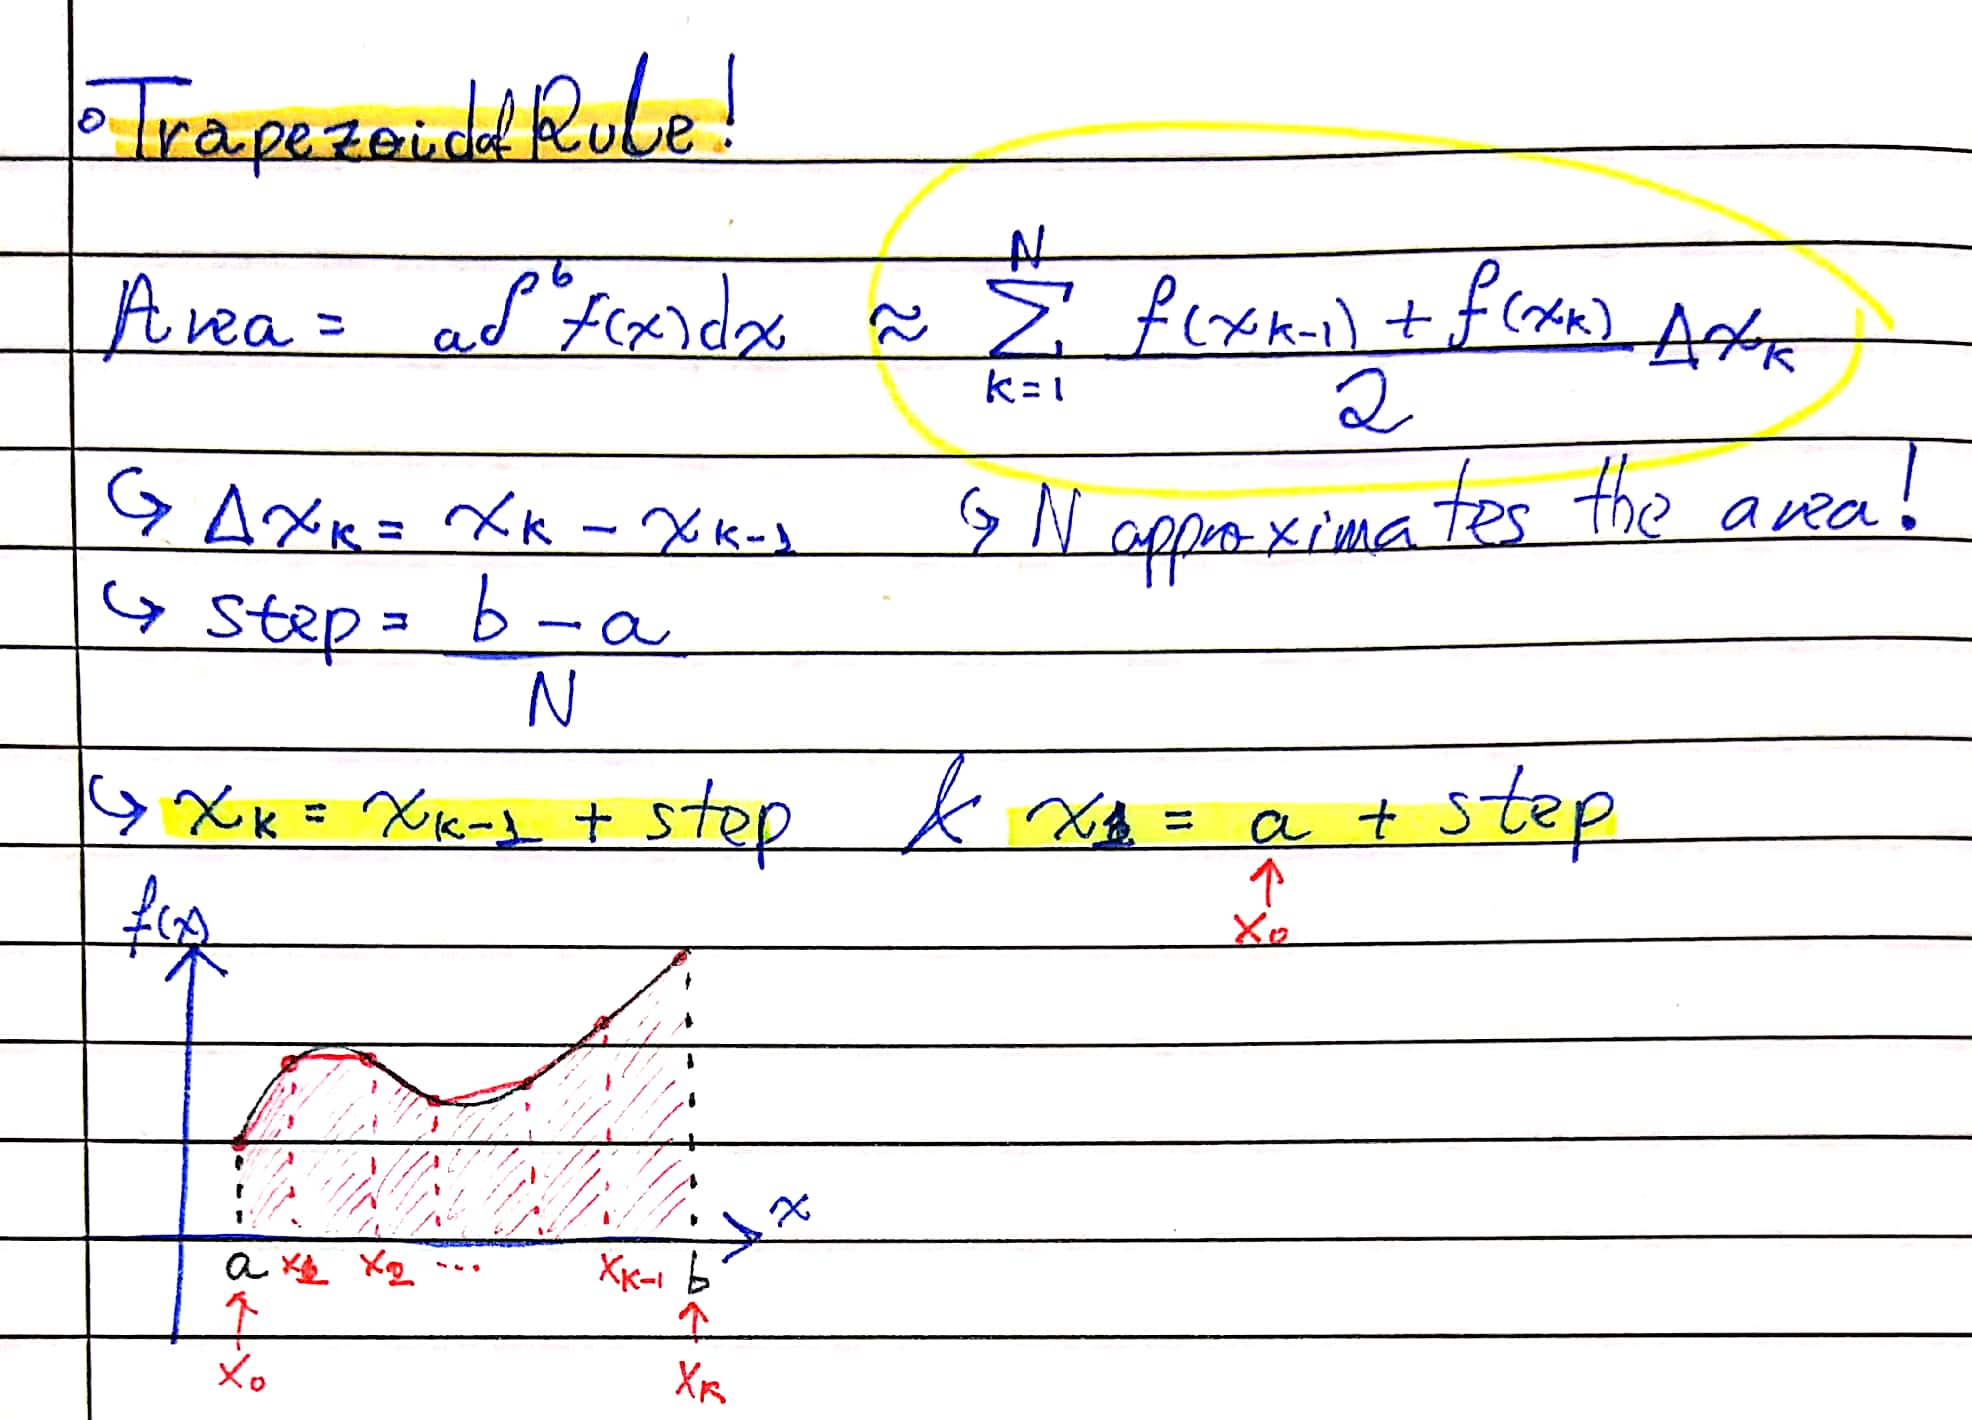 ° Trapezoidal Rule!
Area = a∫ᵇ f(x)dx ≈ Σ_{k=1}^{N} (f(x_{k-1}) + f(x_k))/2 Δx_k
↪ Δx_k = x_k - x_{k-1} ↪ N approximates the area!
↪ step = (b - a)/N
↪ x_k = x_{k-1} + step & x_1 = a + step
↑
x_0
f(x)
x
a x_1 x_2 ... x_{k-1} b
↑ ↑
x_0 x_k